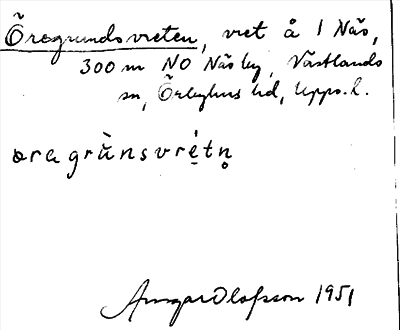 Öregrundsvreten, vret å 1 Näs,
300 m NO Näsby, Västlands
sn, Örbyhus hd, Upps. l.
øragrùnsvrétn̥
Ansgar Olofsson 1951